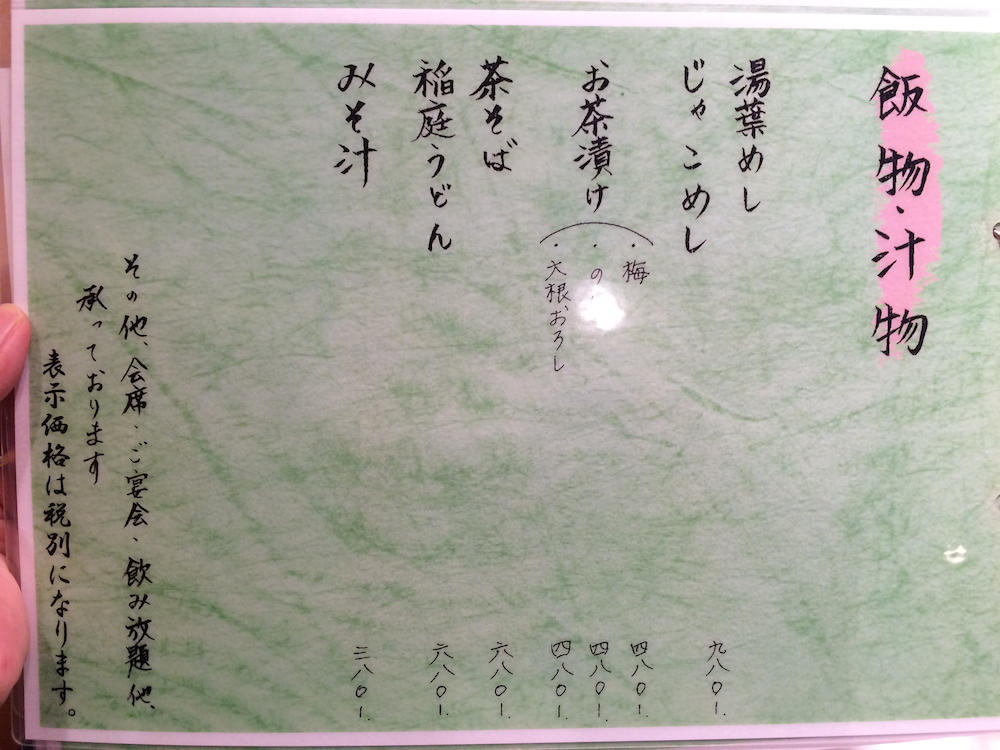 飯物・汁物
湯葉めし
じゃこめし
九八〇.
お茶漬け
・梅
四八〇.
・の
四八〇.
・大根おろし
四八〇.
茶そば
六八〇.
稲庭うどん
六八〇.
みそ汁
三八〇.
その他、会席・ご宴会、飲み放題他、
承っております
表示価格は税別になります。